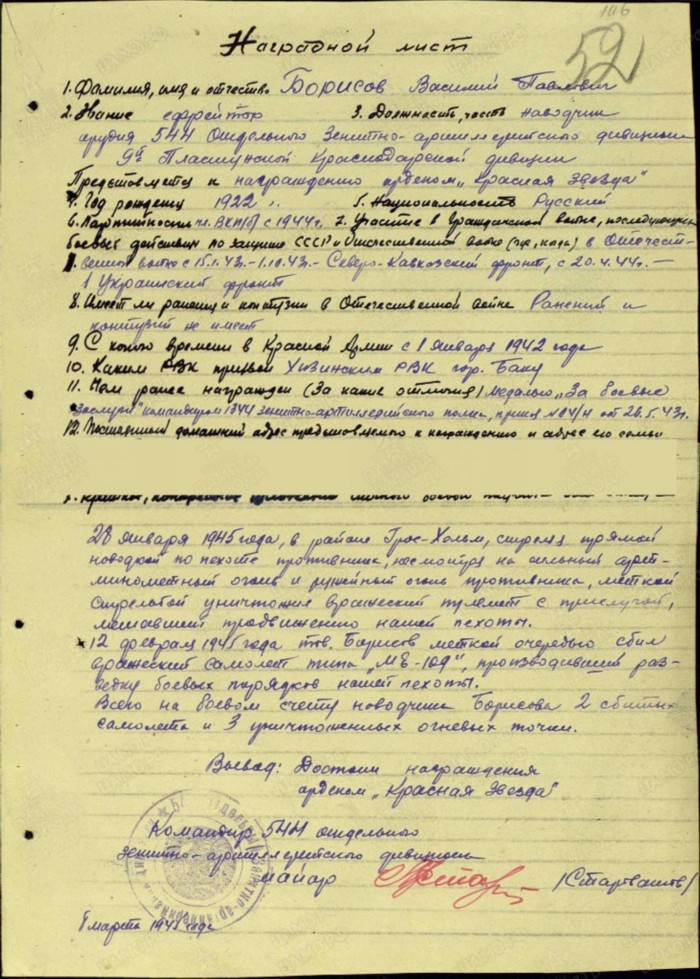 116
52
Наградной лист
1. Фамилия, имя и отчество Борисов Василий Павлович
2. Звание ефрейтор 3. Должность, часть наводчик
орудия 544 Отдельного Зенитно-артиллерийского дивизиона
9й Пластунской Краснодарской дивизии
Представляется к награждению орденом „Красная Звезда"
4. Год рождения 1922 г. 5. Национальность Русский
6. Партийность чл. ВКП(б) с 1944г. 7. Участие в Гражданской войне, последующих
боевых действиях по защите СССР и Отечественной войне (где, когда) в Отечест-
венной войне с 15.1.43г.-1.10.43г.- Северо-Кавказский фронт, с 20.4.44г.-
1 Украинский фронт
8. Имеет ли ранения и контузии в Отечественной войне Ранений и
контузий не имеет
9. С какого времени в Красной Армии с 1 января 1942 года
10. Каким РВК призван РВК гор. Баку
11. Чем ранее награжден (За какие отличия) медалью „За боевые
заслуги" командиром 1344 зенитно-артиллерийского полка, приказ №04/н от 26.5.43г.
12. Постоянный домашний адрес представляемого к награждению и адрес его семьи
28 января 1945 года, в районе Грос-Хольм, стреляя прямой
наводкой по пехоте противника, несмотря на сильный арт-
минометный огонь и ружейный огонь противника, меткой
стрельбой уничтожил вражеский пулемет с прислугой,
мешавший продвижению нашей пехоты.
12 февраля 1945 года тов. Борисов меткой очередью сбил
вражеский самолет типа „МЕ-109", производивший раз-
ведку боевых порядков нашей пехоты.
Всего на боевом счету наводчика Борисова 2 сбитых
самолета и 3 уничтоженных огневых точки.
Вывод: Достоин награждения
орденом „Красная Звезда"
Командир 544 отдельного
зенитно-артиллерийского дивизиона
майор
8 марта 1945 года